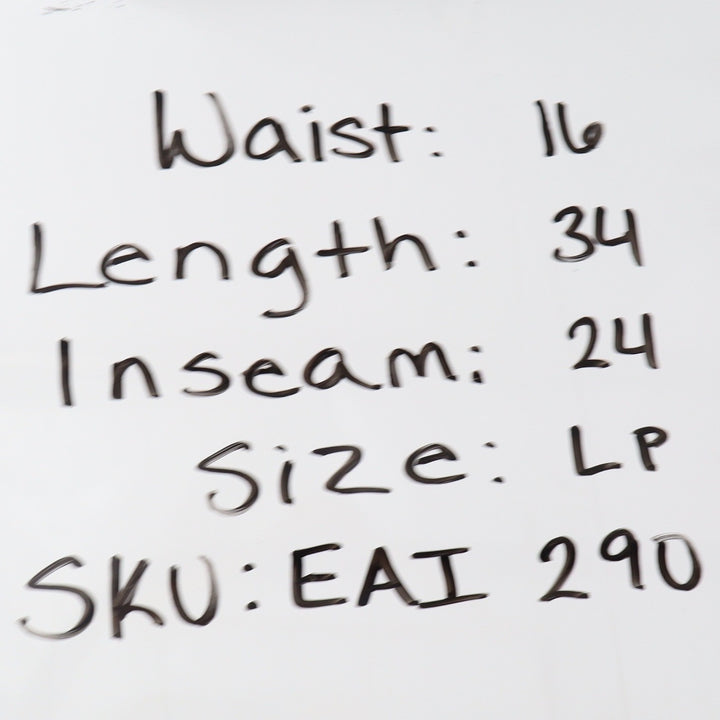 Waist: 16
Length: 34
Inseam: 24
Size: LP
SKU: EAI 290